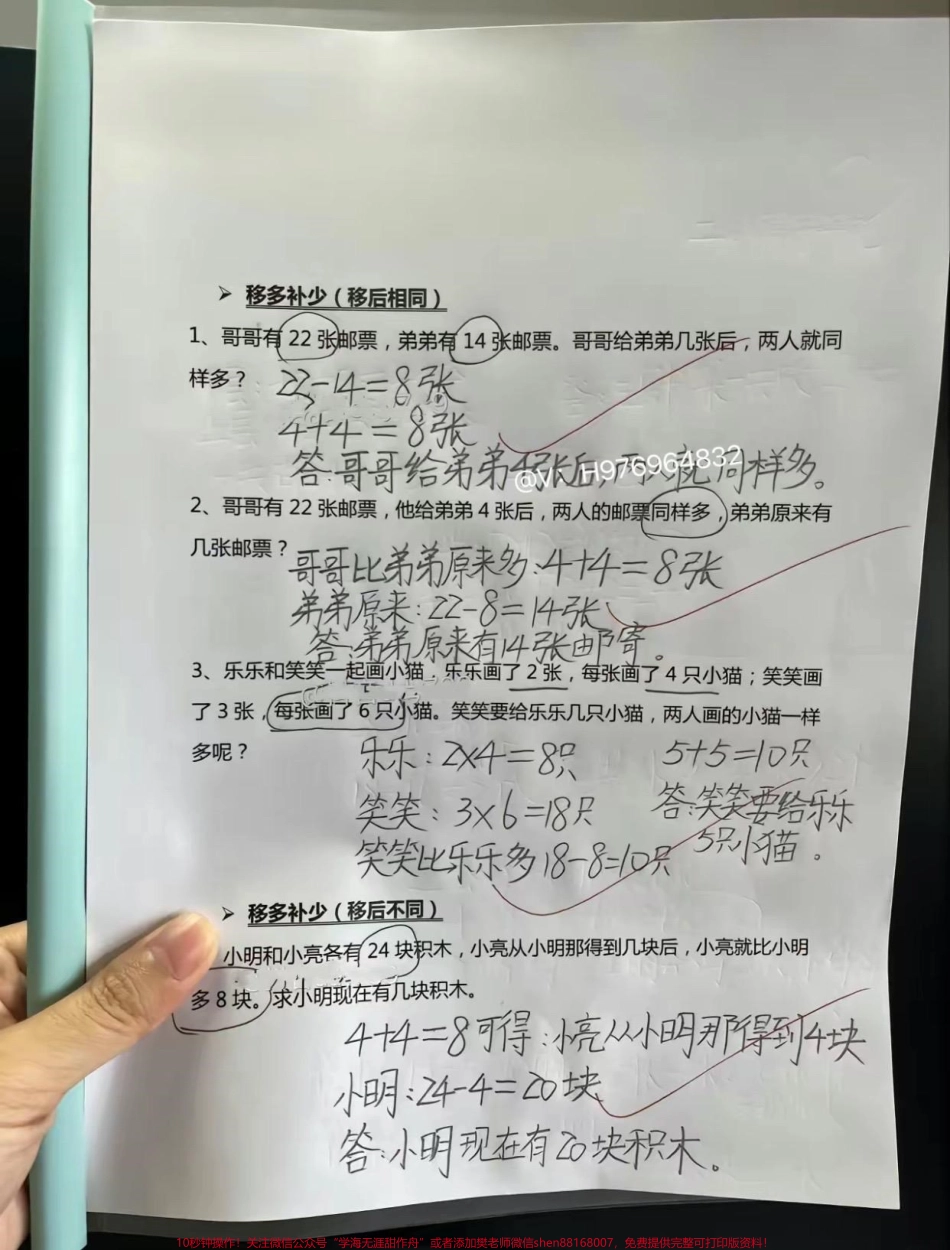 ➢ 移多补少（移后相同）
1、哥哥有 22 张邮票，弟弟有 14 张邮票。哥哥给弟弟几张后，两人就同
样多？
22-14=8张
4+4=8张
答:哥哥给弟弟4张后,两人就同样多。
@V：H976964832
2、哥哥有 22 张邮票，他给弟弟 4 张后，两人的邮票同样多，弟弟原来有
几张邮票？
哥哥比弟弟原来多:4+4=8张
弟弟原来:22-8=14张
答:弟弟原来有14张邮寄。
3、乐乐和笑笑一起画小猫．乐乐画了 2 张，每张画了 4 只小猫；笑笑画
了 3 张，每张画了 6 只小猫。笑笑要给乐乐几只小猫，两人画的小猫一样
多呢？
乐乐:2×4=8只
笑笑:3×6=18只
笑笑比乐乐多18-8=10只
5+5=10只
答:笑笑要给乐乐
5只小猫。
➢ 移多补少（移后不同）
小明和小亮各有 24 块积木，小亮从小明那得到几块后，小亮就比小明
多 8 块。求小明现在有几块积木。
4+4=8可得:小亮从小明那得到4块
小明:24-4=20块
答:小明现在有20块积木。
10秒钟操作！关注微信公众号“学海无涯甜作舟”或者添加樊老师微信shen88168007，免费提供完整可打印版资料！